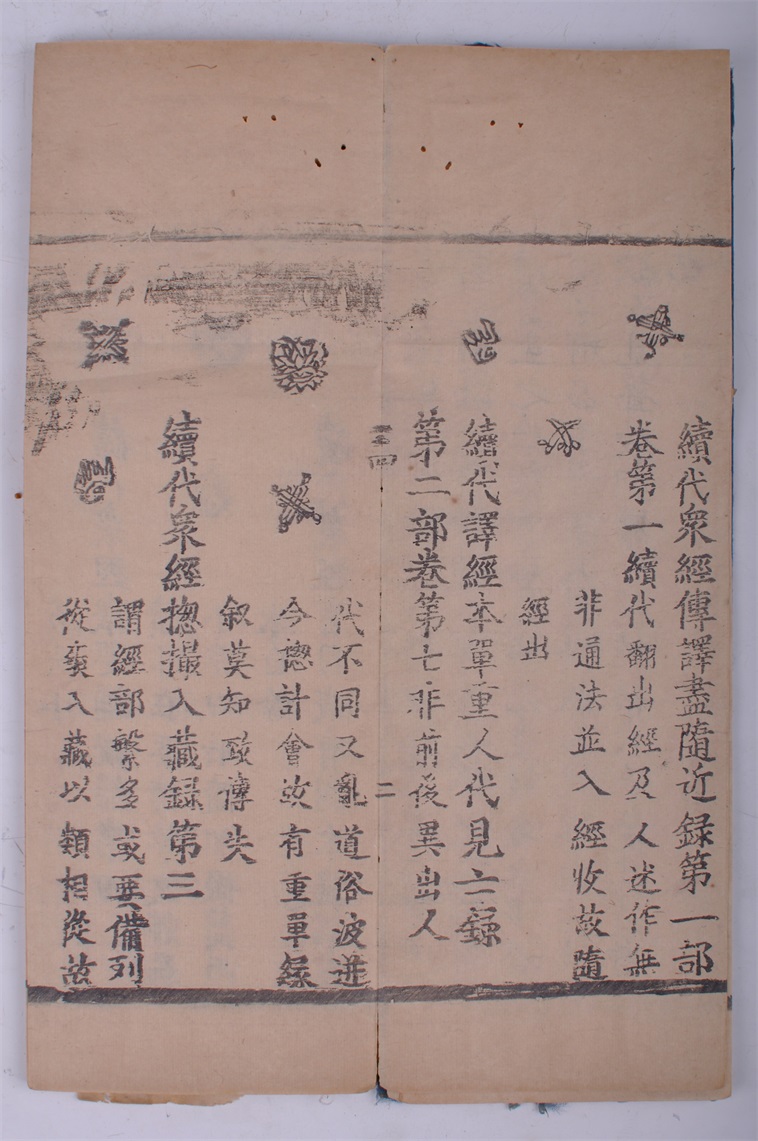 續代衆經傳譯盡隨近錄第一部
卷第一續代翻出經及人述作無
非通法並入經收故隨
經出
續代譯經本單重人代見亡錄
第二部卷第七非前後異出人
二
代不同又亂道俗波迸
今揔計會故有重單緣
叙莫知致傳失
續代衆經揔撮入藏録第三
謂經部繁多或無備列
從要入藏以類相從故